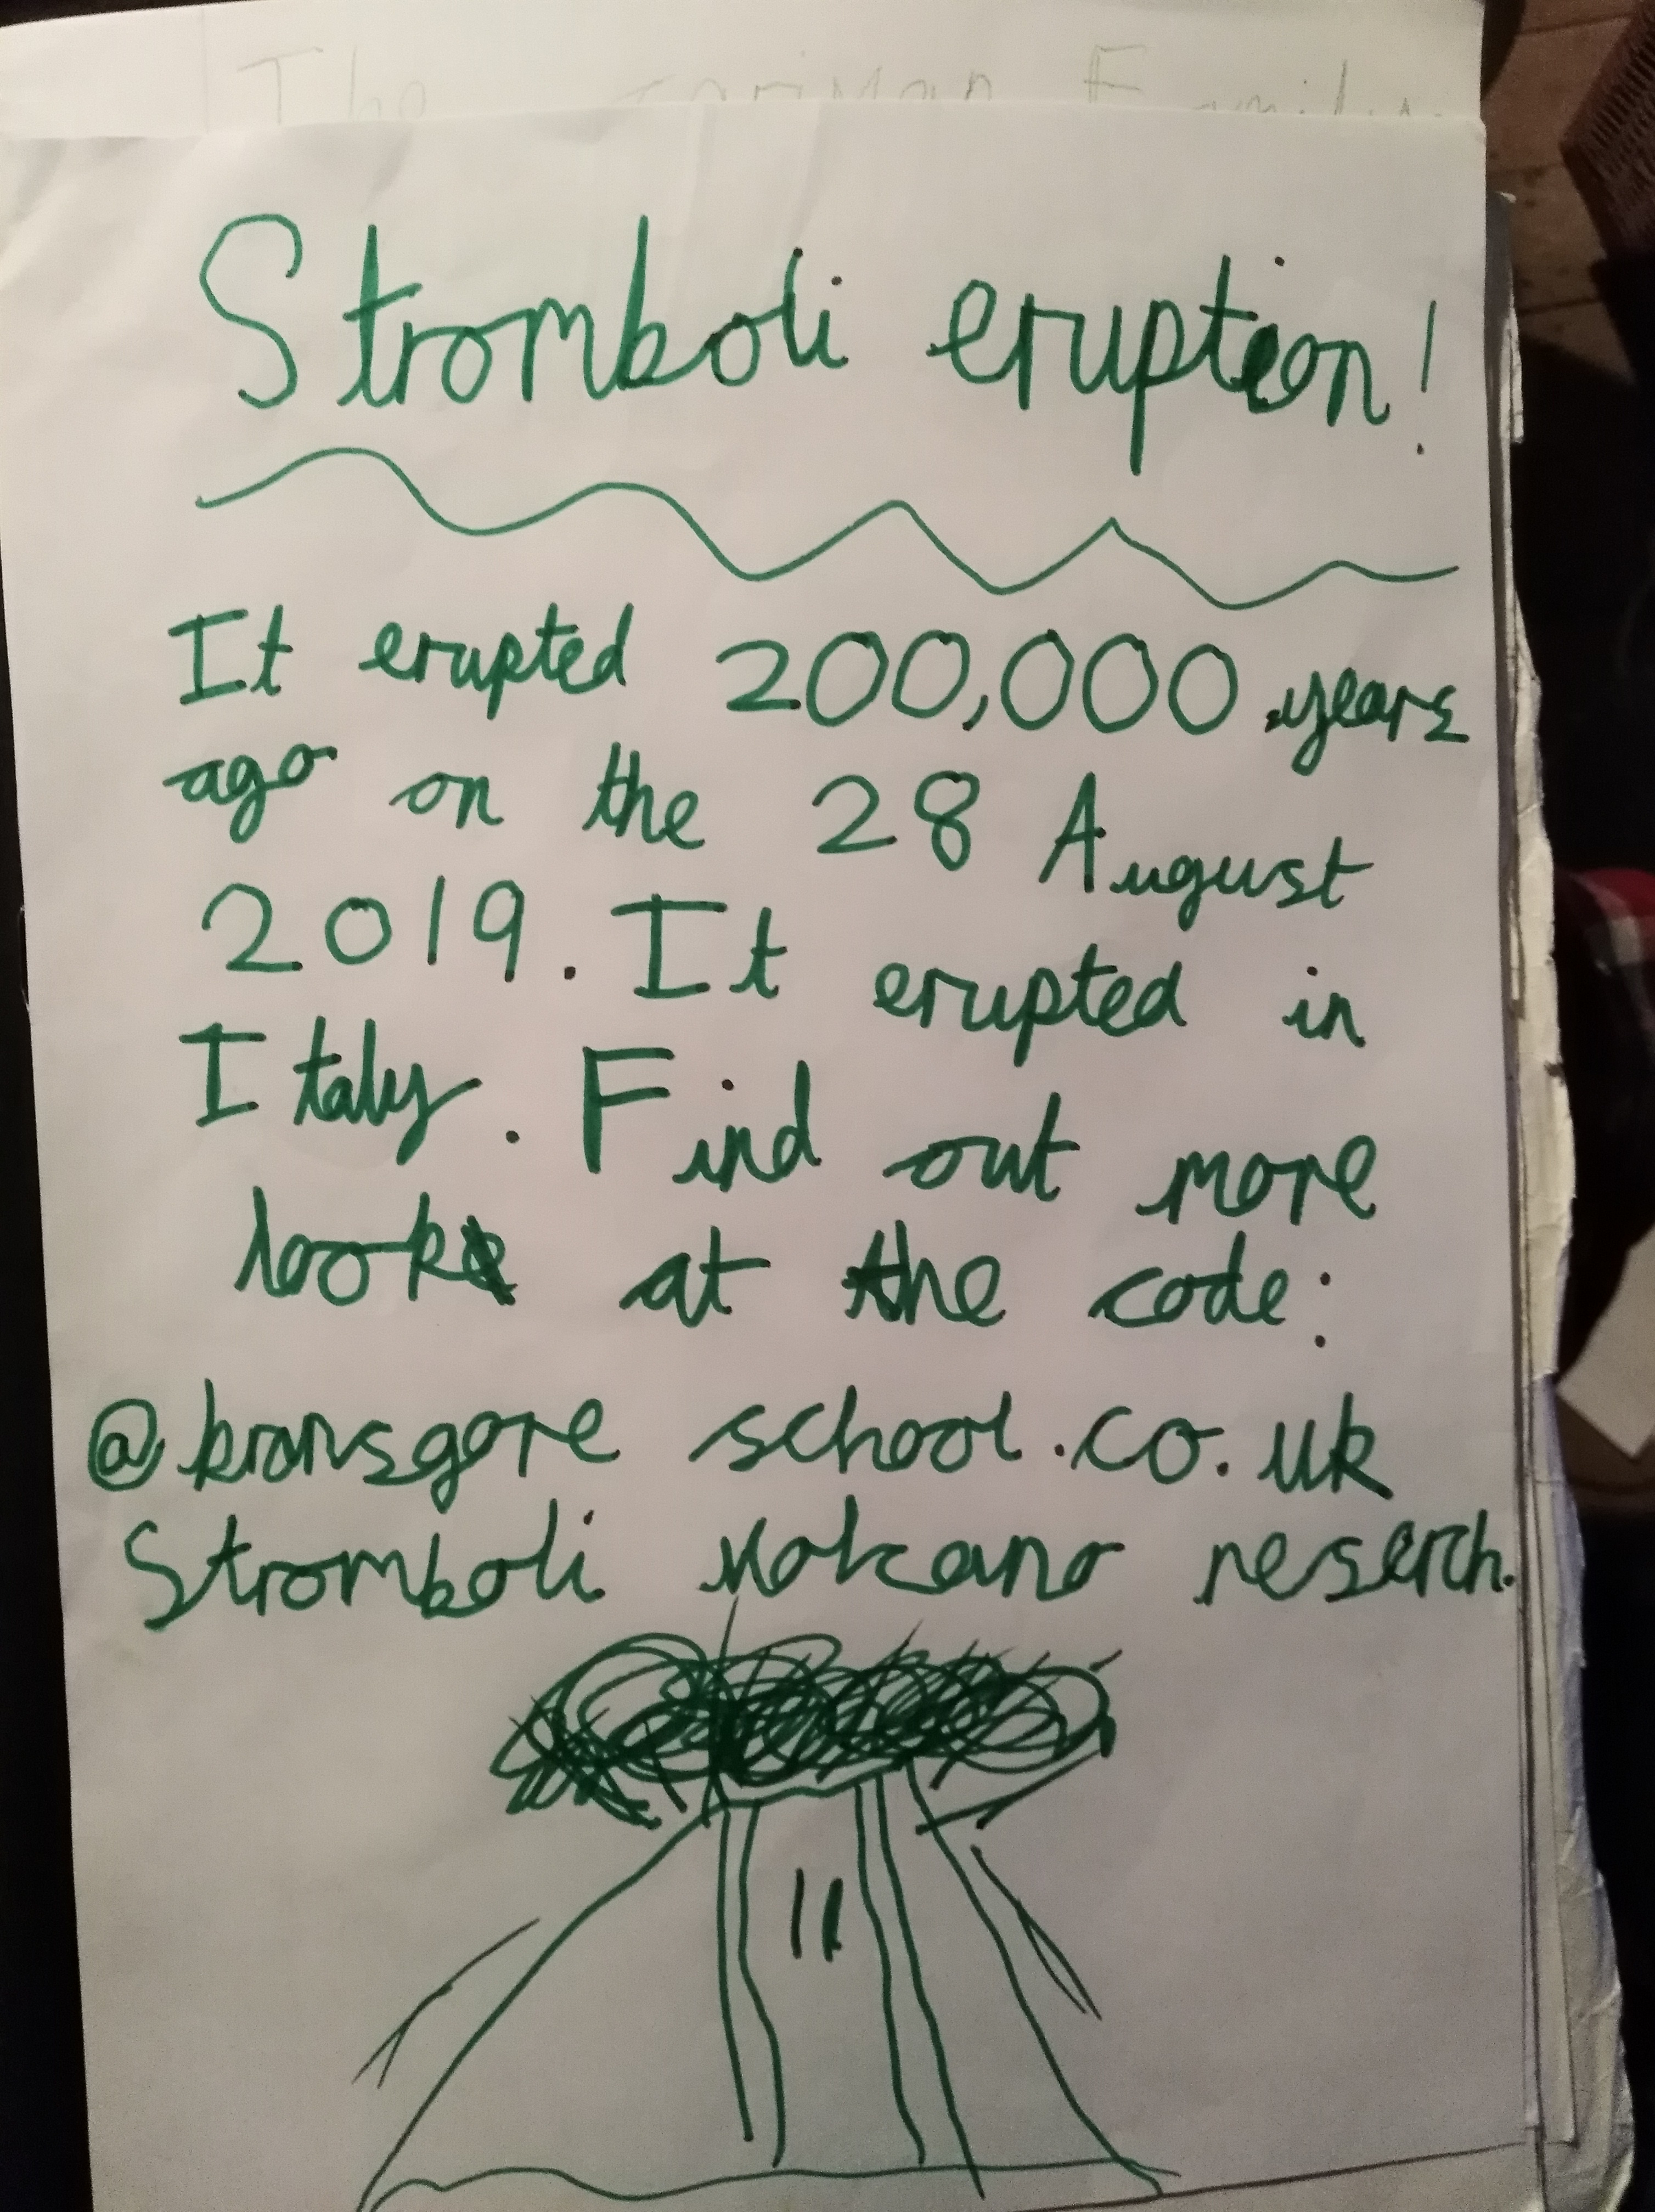 The Family
Stromboli eruption!
It erupted 200,000 years
ago on the 28 August
2019. It erupted in
Italy. Find out more
look at the code:
@bransgore school.co.uk
Stromboli volcano reserch.